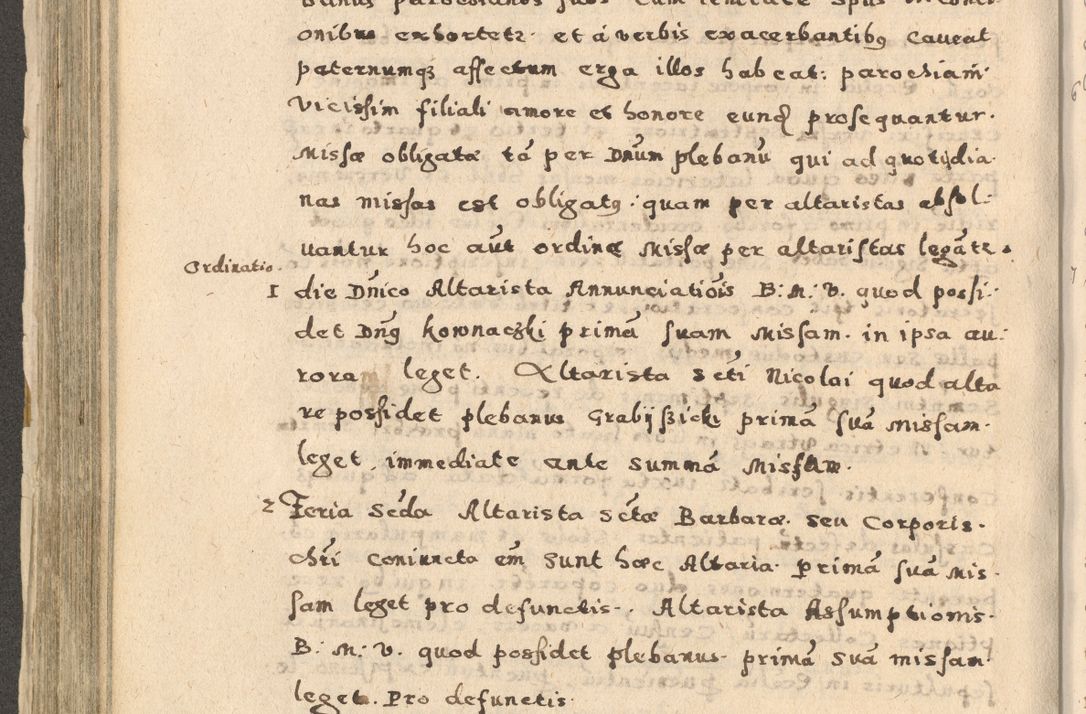 onibus exhortetr. et á verbis exacerbantibꝫ caveat
paternumqꝫ affectum erga illos habeat: parochiani
vicissim filiali amore et honore eund prosequantur.
Missæ obligatæ tã per Dnum plebanũ qui ad quotidia
nas missas est obligatꝰ: quam per altaristas absol-
uantur hoc aut ordine Missæ per altaristas legãte.
Ordinatio.
1 die Dnico Altarista Annunciatiois B: M: V. quod possi-
det Dnꝰ kownaczki primã suam Missam. in ipsa au-
rora leget. Altarista Scti Nicolai quod alta
re possidet plebanus Grabijßicki primã suã Missam.
leget. immediate ante summã Missam.
2 Feria Scda Altarista Sctæ Barbaræ. seu Corporis.
Chri coniuncta em sunt hæc Altaria. primã suã Mis-
sam leget pro defunctis. Altarista Assumptionis.
B: M: V. quod possidet plebanus. primã suã missam
leget. Pro defunctis.